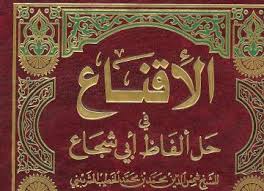 الإقناع
في
حل ألفاظ أبي شجاع
للشيخ شمس الدين محمد بن محمد الخطيب الشربيني